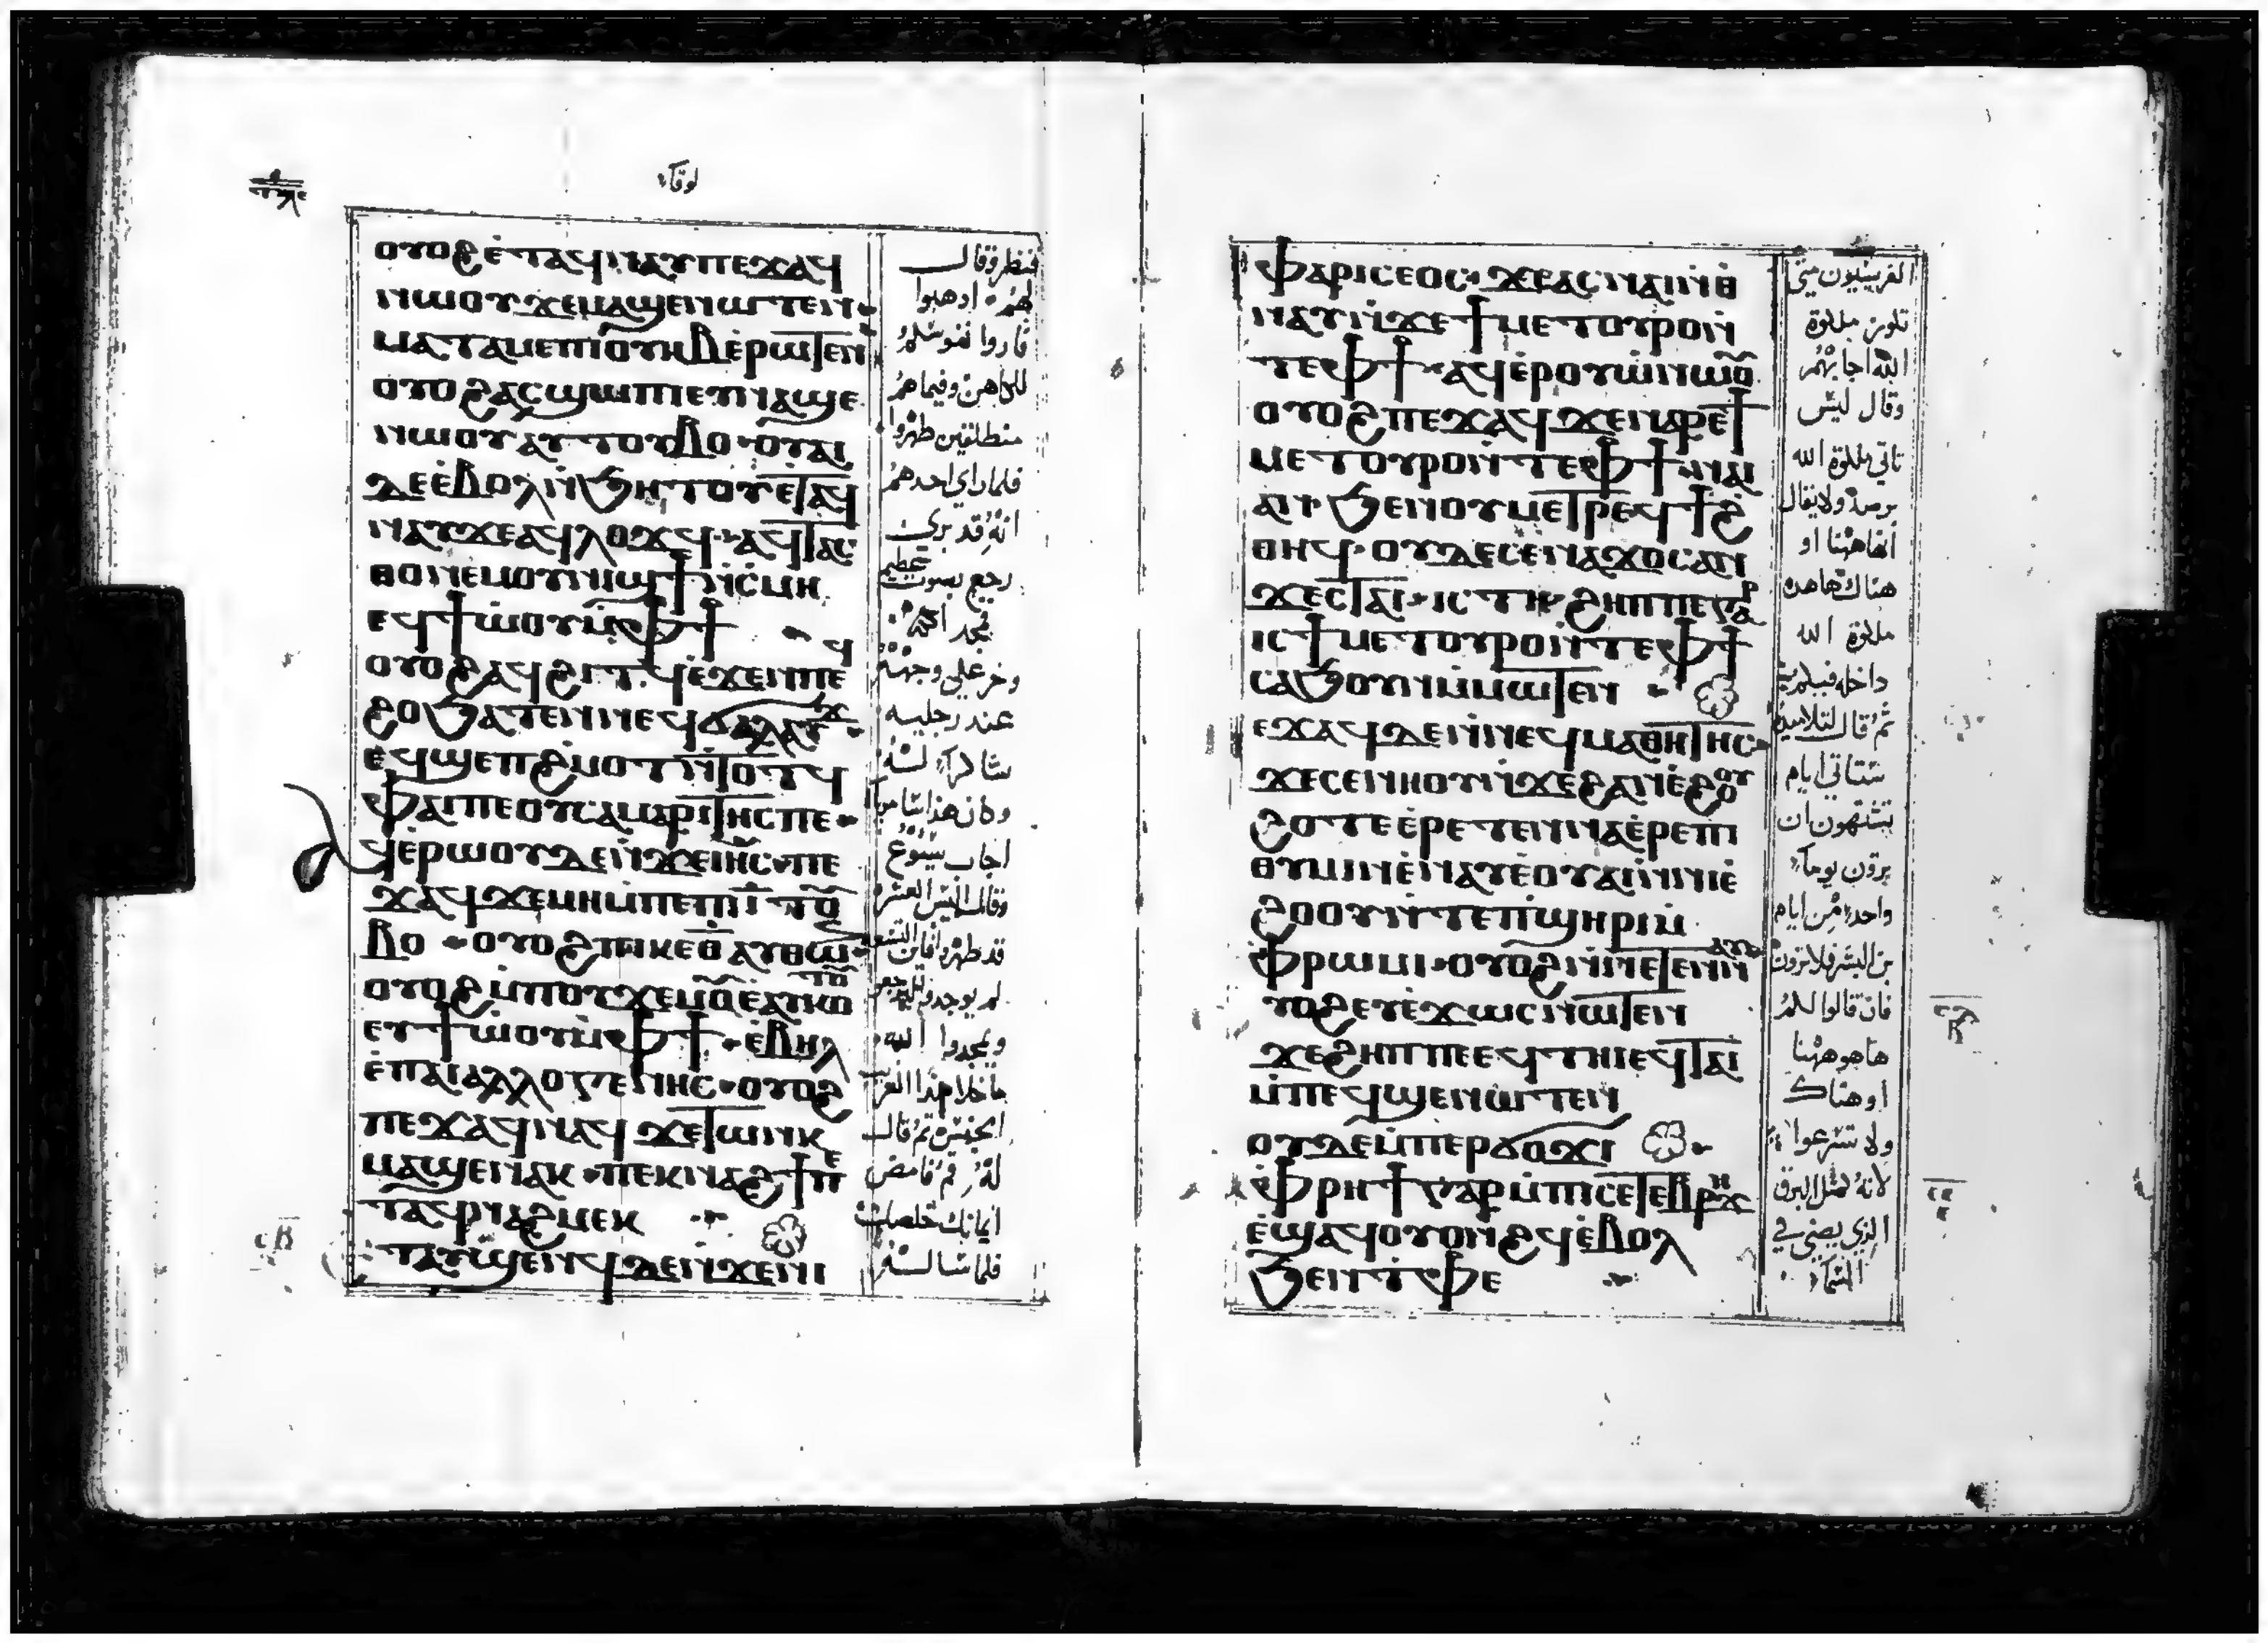 لوقا
ⲟⲩⲟϩ ⲉ̀ⲧⲁϥⲛⲁⲩ ⲡⲉϫⲁϥ
ⲛⲱⲟⲩ ϫⲉ ⲙⲁϣⲉⲛⲱⲧⲉⲛ
ⲙⲁⲧⲁⲙⲉ ⲡⲓⲟⲩⲏⲃ ⲉ̀ⲣⲱⲧⲉⲛ
ⲟⲩⲟϩ ⲁⲥϣⲱⲡⲓ ⲉⲩⲛⲁϣⲉ
ⲛⲱⲟⲩ ⲁⲩⲧⲟⲩⲃⲟ ⲟⲩⲁⲓ
ⲇⲉ ⲉ̀ⲃⲟⲗ ⲛ̀ϧⲏⲧⲟⲩ ⲉ̀ⲧⲁϥ
ⲛⲁⲩ ϫⲉ ⲁϥⲗⲟϫϥ ⲁϥⲧⲁⲥ
ⲑⲟ ⲛⲉⲙ ⲟⲩⲛⲓϣϯ ⲛ̀ⲥⲙⲏ
ⲉϥϯⲱ̀ⲟⲩ ⲙ̀ⲫϯ
ⲟⲩⲟϩ ⲁϥϩⲓⲧϥ ⲉ̀ϫⲉⲛ ⲡⲉϥ
ϩⲟ ϧⲁⲧⲉⲛ ⲛⲉϥϭⲁⲗⲁⲩϫ
ⲉϥϣⲉⲡϩ̀ⲙⲟⲧ ⲛ̀ⲧⲟⲧϥ
ⲫⲁⲓ ⲡⲉ ⲟⲩⲥⲁⲙⲁⲣⲓⲧⲏⲥ ⲡⲉ
ϥⲉ̀ⲣⲱⲟⲩ ⲇⲉ ⲛ̀ϫⲉ ⲓⲏ̅ⲥ ⲡⲉ
ϫⲁϥ ϫⲉ ⲙⲏ ⲙ̀ⲡⲉ ⲡⲓⲓ̅ ⲧⲟⲩ
ⲃⲟ ⲟⲩⲟϩ ⲡⲓⲕⲉⲑ̅ ⲁⲩⲑⲱⲛ
ⲟⲩⲟϩ ⲙ̀ⲡⲟⲩϫⲉⲙⲟⲩ ⲉ̀ⲁⲩⲕⲱⲧⲟⲩ
ⲉⲩϯⲱ̀ⲟⲩ ⲙ̀ⲫϯ ⲉ̀ⲃⲏⲗ
ⲉ̀ⲡⲁⲓⲁⲗⲗⲟⲅⲉⲛⲏⲥ ⲟⲩⲟϩ
ⲡⲉϫⲁϥ ⲛⲁϥ ϫⲉ ⲧⲱⲛⲕ
ⲙⲁϣⲉⲛⲁⲕ ⲡⲉⲕⲛⲁϩϯ ⲡⲉ
ⲧⲁϥⲛⲁϩⲙⲉⲕ
ⲧⲁⲩϣⲉⲛϥ ⲇⲉ ⲛ̀ϫⲉ ⲛⲓ
فنظر وقال
لهم اذهبوا
فاروا نفوسكم
للكاهن وفيما هم
منطلقين طهروا
فلما راى احدهم
انه قد برى
رجع بصوت عظيم
يمجد الله
وخر على وجهه
عند رجليه
شاكرا له
وكان هذا سامريا
اجاب يسوع
وقال اليس العشرة
قد طهروا فاين التسعه
لم يوجدوا ليرجعوا
ويمجدوا الله
ما خلا هذا الغريب
الجنس ثم قال
له قم فامض
ايمانك خلصك
فلما سالته
ⲫⲁⲣⲓⲥⲉⲟⲥ ϫⲉ ⲁⲥⲛⲁⲓ ⲛ̀ⲑ
ⲛⲁⲩ ⲛ̀ϫⲉ ϯⲙⲉⲧⲟⲩⲣⲟ ⲛ̀
ⲧⲉ ⲫϯ ⲁϥⲉ̀ⲣⲟⲩⲱ̀ ⲛⲱⲟⲩ
ⲟⲩⲟϩ ⲡⲉϫⲁϥ ϫⲉ ⲛⲁⲣⲉ ϯ
ⲙⲉⲧⲟⲩⲣⲟ ⲛ̀ⲧⲉ ⲫϯ ⲛⲏⲟⲩ
ⲁⲛ ϧⲉⲛ ⲟⲩⲙⲉⲧⲣⲉϥϯϩ
ⲑⲏϥ ⲟⲩⲇⲉ ⲥⲉⲛⲁϫⲟⲥ ⲁⲛ
ϫⲉ ⲥⲧⲁⲓ ⲓⲥ ⲧⲏ ϩⲏⲡⲡⲉ ⲅⲁⲣ
ⲓⲥ ϯⲙⲉⲧⲟⲩⲣⲟ ⲛ̀ⲧⲉ ⲫϯ
ⲥⲁϧⲟⲩⲛ ⲙ̀ⲙⲱⲧⲉⲛ
ⲉϫⲁϥ ⲇⲉ ⲛ̀ⲛⲉϥⲙⲁⲑⲏⲧⲏⲥ
ϫⲉ ⲥⲉⲛⲏⲟⲩ ⲛ̀ϫⲉ ϩⲁⲛⲉ̀ϩⲟⲟⲩ
ϩⲟⲧⲉ ⲉ̀ⲣⲉⲧⲉⲛⲛⲁⲉ̀ⲣⲉⲡⲓ
ⲑⲩⲙⲓⲛ ⲉ̀ⲛⲁⲩ ⲉ̀ⲟⲩⲁⲓ ⲛ̀ⲛⲓⲉ̀
ϩⲟⲟⲩ ⲛ̀ⲧⲉ ⲡ̀ϣⲏⲣⲓ ⲙ̀
ⲫⲣⲱⲙⲓ ⲟⲩⲟϩ ⲛ̀ⲛⲉⲧⲉⲛⲛⲁⲩ
ⲩⲟϩ ⲉⲩⲉ̀ϫⲱⲥ ⲛⲱⲧⲉⲛ
ϫⲉ ϩⲏⲡⲡⲉ ⲉϥⲧⲏ ⲓⲉ ϥⲧⲁⲓ
ⲙ̀ⲡⲉϥϣⲉⲛⲱⲧⲉⲛ
ⲟⲩⲇⲉ ⲙ̀ⲡⲉⲣϭⲟϫⲓ
ⲫⲣⲏϯ ⲅⲁⲣ ⲙ̀ⲡⲓⲥⲉⲧⲉⲃⲣⲏϫ
ⲉ̀ϣⲁϥⲟⲩⲟⲛϩϥ ⲉ̀ⲃⲟⲗ
ϧⲉⲛ ⲧ̀ⲫⲉ
الفريسيون متى
تاتى ملكوة
الله اجابهم
وقال ليس
تاتي ملكوة الله
برصد ولا يقال
انها ههنا او
هناك هاهذه
ملكوة الله
داخله فيكم
ثم قال لتلاميذه
ستاتي ايام
تشتهون ان
ترون يوما
واحدا من ايام
بن البشر فلا ترون
فان قالوا لكم
هاهو ههنا
او هناك
ولا تسرعوا
لانه كمثل البرق
الذي يضي في
السما